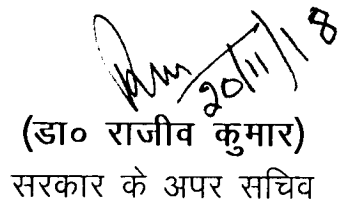 20/11/18
(डा० राजीव कुमार)
सरकार के अपर सचिव